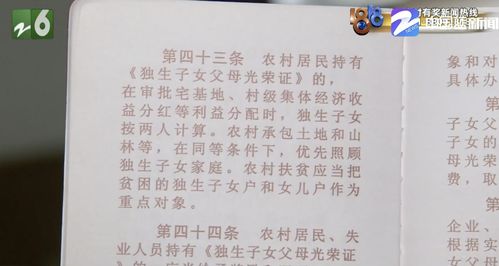 6
有奖新闻热线
新闻
第四十三条 农村居民持有
《独生子女父母光荣证》的,
在审批宅基地、村级集体经济收
益分红等利益分配时,独生子女
按两人计算。农村承包土地和山
林等,在同等条件下,优先照顾
独生子女家庭。农村扶贫应当把
贫困的独生子女户和女儿户作为
重点对象。
第四十四条 农村居民、失
业人员持有《独生子女父母光荣证》
象和对
具体办
第
子女父
母光荣
子女父
母光荣
费,取
第
企业、
根据实